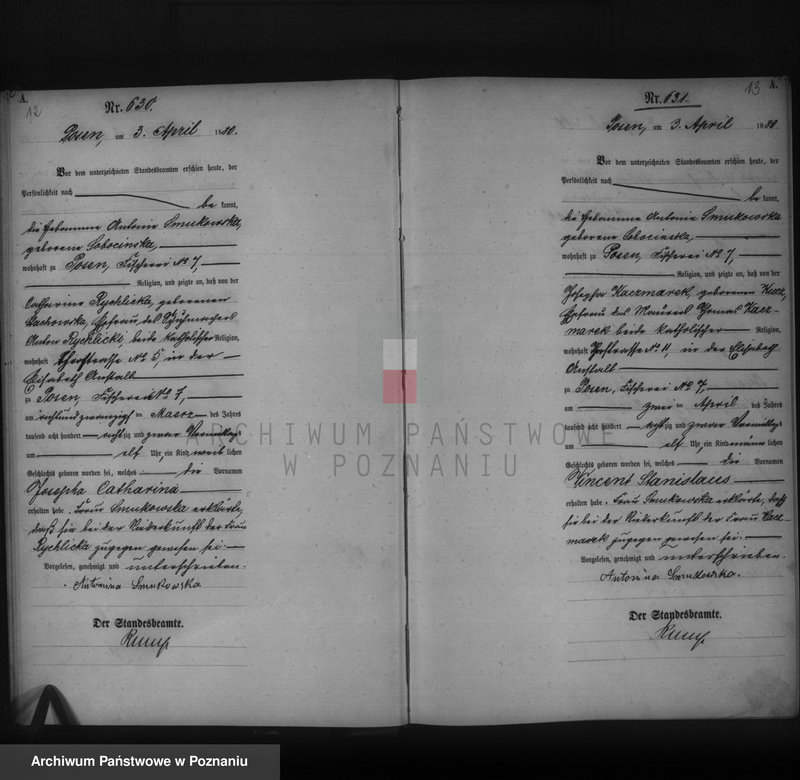 A.
12
Nr. 630.
Posen, am 3. April 1880.
Vor dem unterzeichneten Standesbeamten erschien heute, der
Persönlichkeit nach
be kannt,
die Hebamme Antonie Smukowska,
geborene Sobocinska,
wohnhaft zu Posen, Fischerei No 7,
Religion, und zeigte an, daß von der
Catharina Rychlicka, geborenen
Lachowska, Ehefrau des Schuhmachers
Anton Rychlicki, beide katholischer Religion,
wohnhaft No 5, in der
Elisabeth Anstalt
zu Posen, Fischerei No 7,
am achtundzwanzigsten Maerz des Jahres
tausend acht hundert achtzig und zwar Vormittags
um elf Uhr, ein Kind weib lichen
Geschlechts geboren worden sei, welches die Vornamen
Josepha Catharina
erhalten habe. Frau Smukowska erklärte,
daß sie bei der Niederkunft der Frau
Rychlicka zugegen gewesen sei.
Vorgelesen, genehmigt und unterschrieben.
Antonina Smukowska
Der Standesbeamte.
13
A.
Nr. 631.
Posen, am 3. April 1880.
Vor dem unterzeichneten Standesbeamten erschien heute, der
Persönlichkeit nach
be kannt,
die Hebamme Antonie Smukowska
geborene Sobocinska,
wohnhaft zu Posen, Fischerei No 7,
Religion, und zeigte an, daß von der
Josepha Kaczmarek, geborenen
Ehefrau des Maurers Thomas Kacz-
marek beide katholischer Religion,
wohnhaft No 11, in der Elisabeth
Anstalt
zu Posen, Fischerei No 7,
am zwei ten April des Jahres
tausend acht hundert achtzig und zwar Vormittags
um elf Uhr, ein Kind männ lichen
Geschlechts geboren worden sei, welches die Vornamen
Vincent Stanislaus
erhalten habe. Frau Smukowska erklärte, daß
sie bei der Niederkunft der Frau Kacz-
marek zugegen gewesen sei.
Vorgelesen, genehmigt und unterschrieben.
Antonina Smukowska.
Der Standesbeamte.
ARCHIWUM PAŃSTWOWE
W POZNANIU
Archiwum Państwowe w Poznaniu